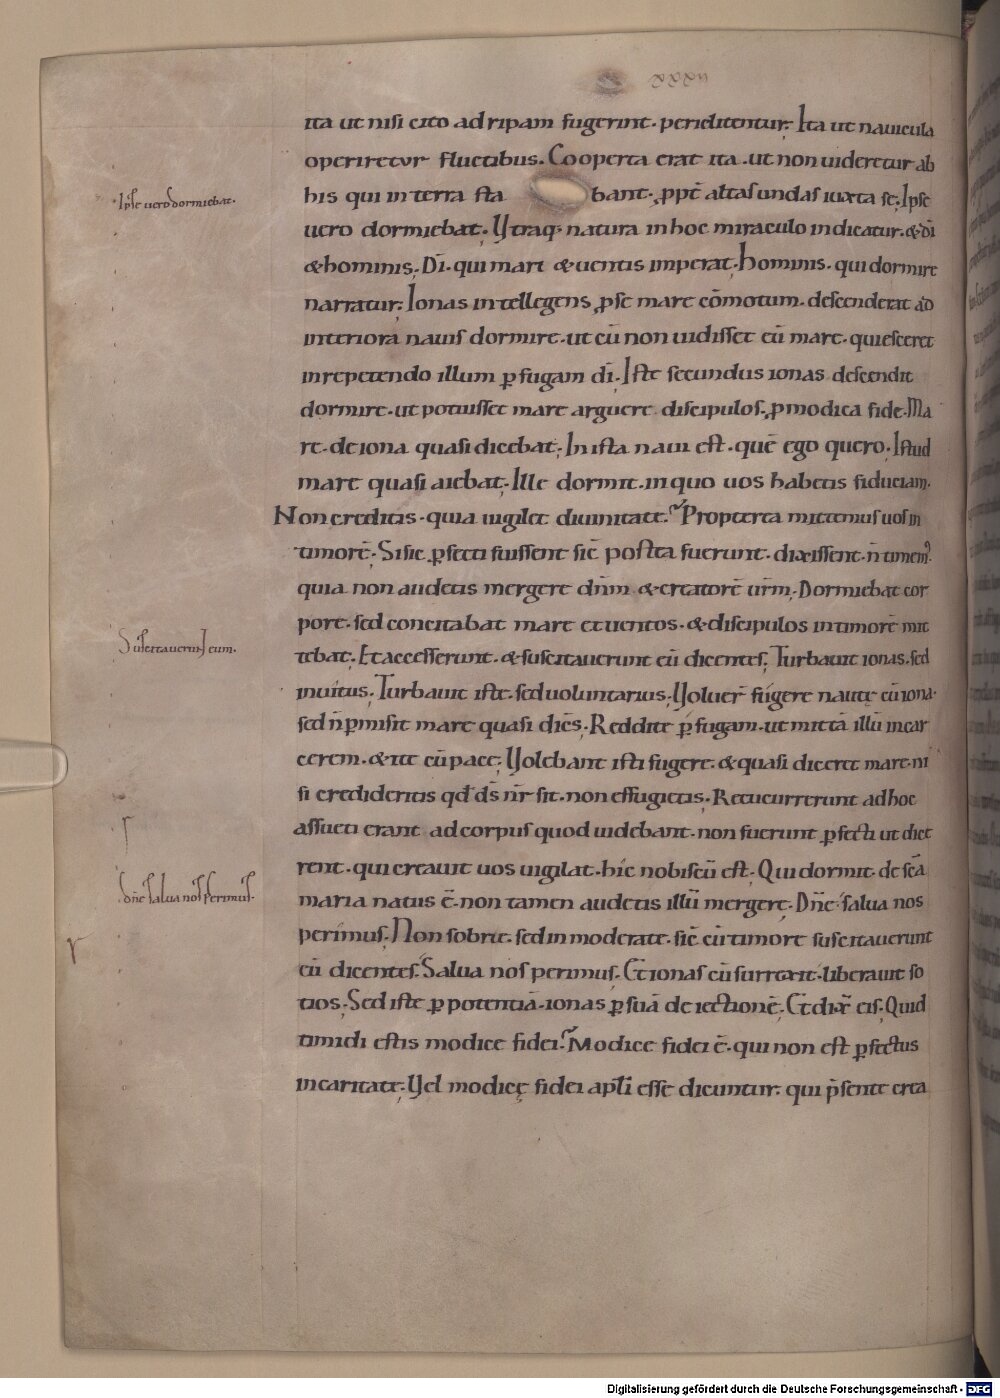 xxxii
ita ut nisi cito ad ripam fugerint. periclitentur; Ita ut nauicula
operiretur fluctibus. Cooperta erat ita. ut non uideretur ab
his qui in terra sta bant. ꝓpt̄ altas undas iuxta se; Ipse
Ipse uero dormiebat.
uero dormiebat. Utraq; natura in hoc miraculo indicatur. & dī
& hominis; Dī. qui mari & uentis imperat. hominis. qui dormire
narratur; Ionas intellegens ꝓ se mare cōmotum. descenderat ad
interiora nauis dormire. ut cū non uidisset eū mare. quiesceret
in repetendo illum ꝑ fugam dī. Iste secundus ionas descendit
dormire. ut potuisset mare arguere discipulos. ꝓ modica fide. Ma
re. de iona quasi dicebat; In ista naui est. quē ego quero. Istud
mare quasi aiebat; Ille dormit. in quo uos habetis fiduciam.
Non creditis. quia uigilet diuinitate? Propterea mittemus uos in
timorē; Si sic ꝑfecti fuissent sic̄ postea fuerunt. dixissent. n̄ timem᾽
quia non audetis mergere dn̄m & creatorē ur̄m; Dormiebat cor
pore. sed concitabat mare et uentos. & discipulos in timorē mit
Suscitauerunt eum.
tebat; Et accesserunt. & suscitauerunt eū dicentes; Turbauit ionas. sed
inuitus; Turbauit iste. sed uoluntarius; Uoluer̄ fugere nautę cū iona.
sed n̄ ꝑmisit mare quasi dicēs; Reddite ꝑ fugam. ut mittā illū in car
cerem. & ite cū pace; Uolebant isti fugere. & quasi diceret mare. ni
si credideritis qd̄ ds̄ nr̄ sit. non effugietis. Recucurrerunt ad hoc
assueti erant ad corpus quod uidebant. non fuerunt ꝑfecti ut dice
rent. qui creauit uos uigilat. hic nobiscū est. Qui dormit. de scā
dn̄e salua nos perimus.
maria natus ē. non tamen audetis illū mergere. Dn̄e salua nos
perimus; Non sobrie. sed inmoderate. sic̄ cū timore suscitauerunt
eū dicentes. Salua nos perimus. Et ionas cū surrexit. liberauit so
tios; Sed iste ꝑ potentiā. ionas ꝑ suā deiectionē; Et dix̄ eis. Quid
timidi estis modice fidei? Modice fidei ē. qui non est ꝑfectus
in caritate; Uel modicę fidei apl̄i esse dicuntur. qui p̄sente erea
Digitalisierung gefördert durch die Deutsche Forschungsgemeinschaft - DFG